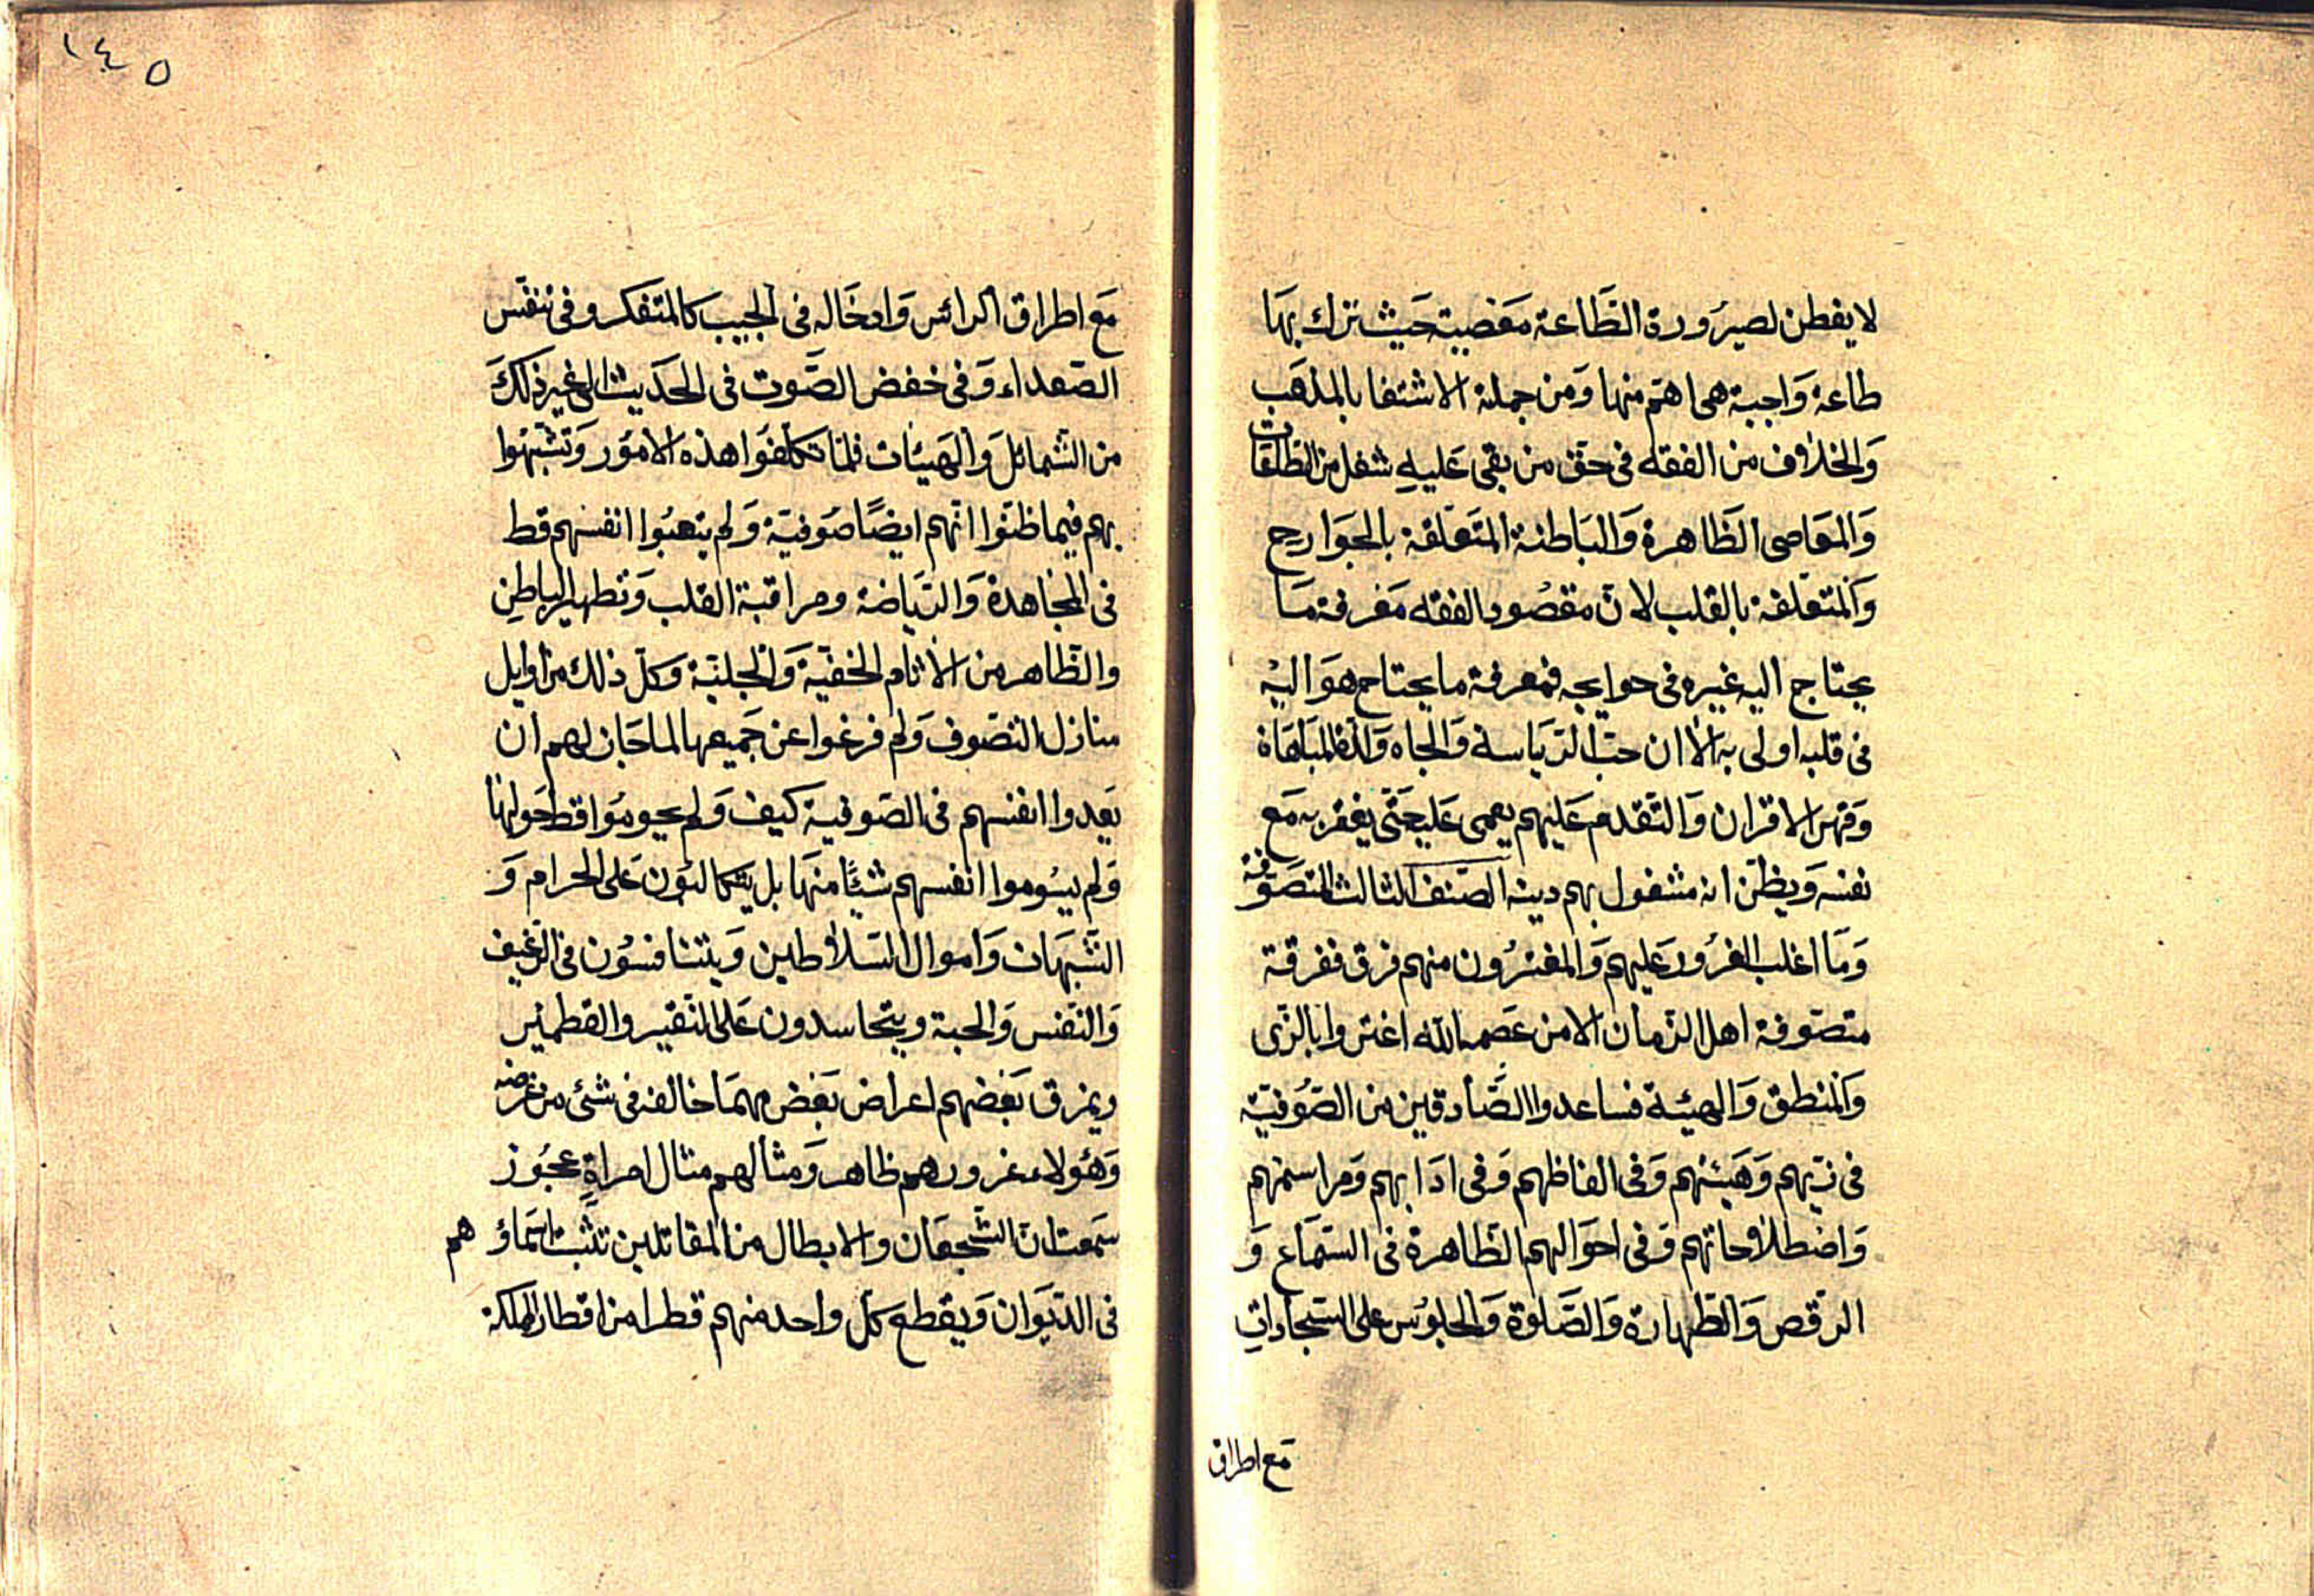 لا يفطن لصيرورة الطاعة معصية حيث ترك بها
طاعة واجبة هى اهم منها ومن جملة الاشتغا بالمذهب
والخلاف من الفقه فى حق من بقى عليه شغل من الطاعات
والمعاصى الظاهرة والباطنة المتعلقة بالجوارح
والمتعلقة بالقلب لان مقصود الفقه معرفة ما
يحتاج اليه غيره فى حوايجه فمعرفة ما يحتاج هو اليه
فى قلبه اولى به الا ان حب الرياسة والجاه ولذة المباهاة
وقهر الاقران والتقدم عليهم يعمى عليه حتى يغتر به مع
نفسه ويظن انه مشغول بهم دينه الصنف الثالث المتصوفة
وما اغلب الغرور عليهم والمغترون منهم فرق ففرقة
متصوفة اهل الزمان الا من عصمه الله اغتروا بالزى
والمنطق والهيئة فساعدوا الصادقين من الصوفية
فى زيهم وهيئتهم وفى الفاظهم وفى ادابهم ومراسمهم
واصطلاحاتهم وفى احوالهم الظاهرة فى السماع و
الرقص والطهارة والصلوة والجلوس على السجادات
مع اطراق
١٤٥
مع اطراق الرائس وادخاله فى الجيب كالمتفكر وفى تنفس
الصعداء وفى خفض الصوت فى الحديث الى غير ذلك
من الشمائل والهيئات فلما تكلفوا هذه الامور وتشبهوا
بهم فيها ظنوا انهم ايضا صوفية ولم يتعبوا انفسهم قط
فى المجاهدة والرياضة ومراقبة القلب وتطهير الباطن
والظاهر من الاثام الخفية والجلية وكل ذلك من اوايل
منازل التصوف ولم فرغوا عن جميعها لما جاز لهم ان
يعدوا انفسهم فى الصوفية كيف ولم يحوموا قط حولها
ولم يسوموا انفسهم شيئا منها بل يتكالبون على الحرام و
الشبهات واموال السلاطين ويتنافسون فى الرغيف
والنفس والحبة ويتحاسدون على النقير والقطمير
ويمزق بعضهم اعراض بعض مهما خالفه فى شئ من غرضه
وهؤلاء غرورهم ظاهر ومثالهم مثال امراة عجوز
سمعت ان الشجعان والابطال من المقاتلين تثبت اسماؤ هم
فى الديوان ويقطع كل واحد منهم قطرا من اقطار المملكة